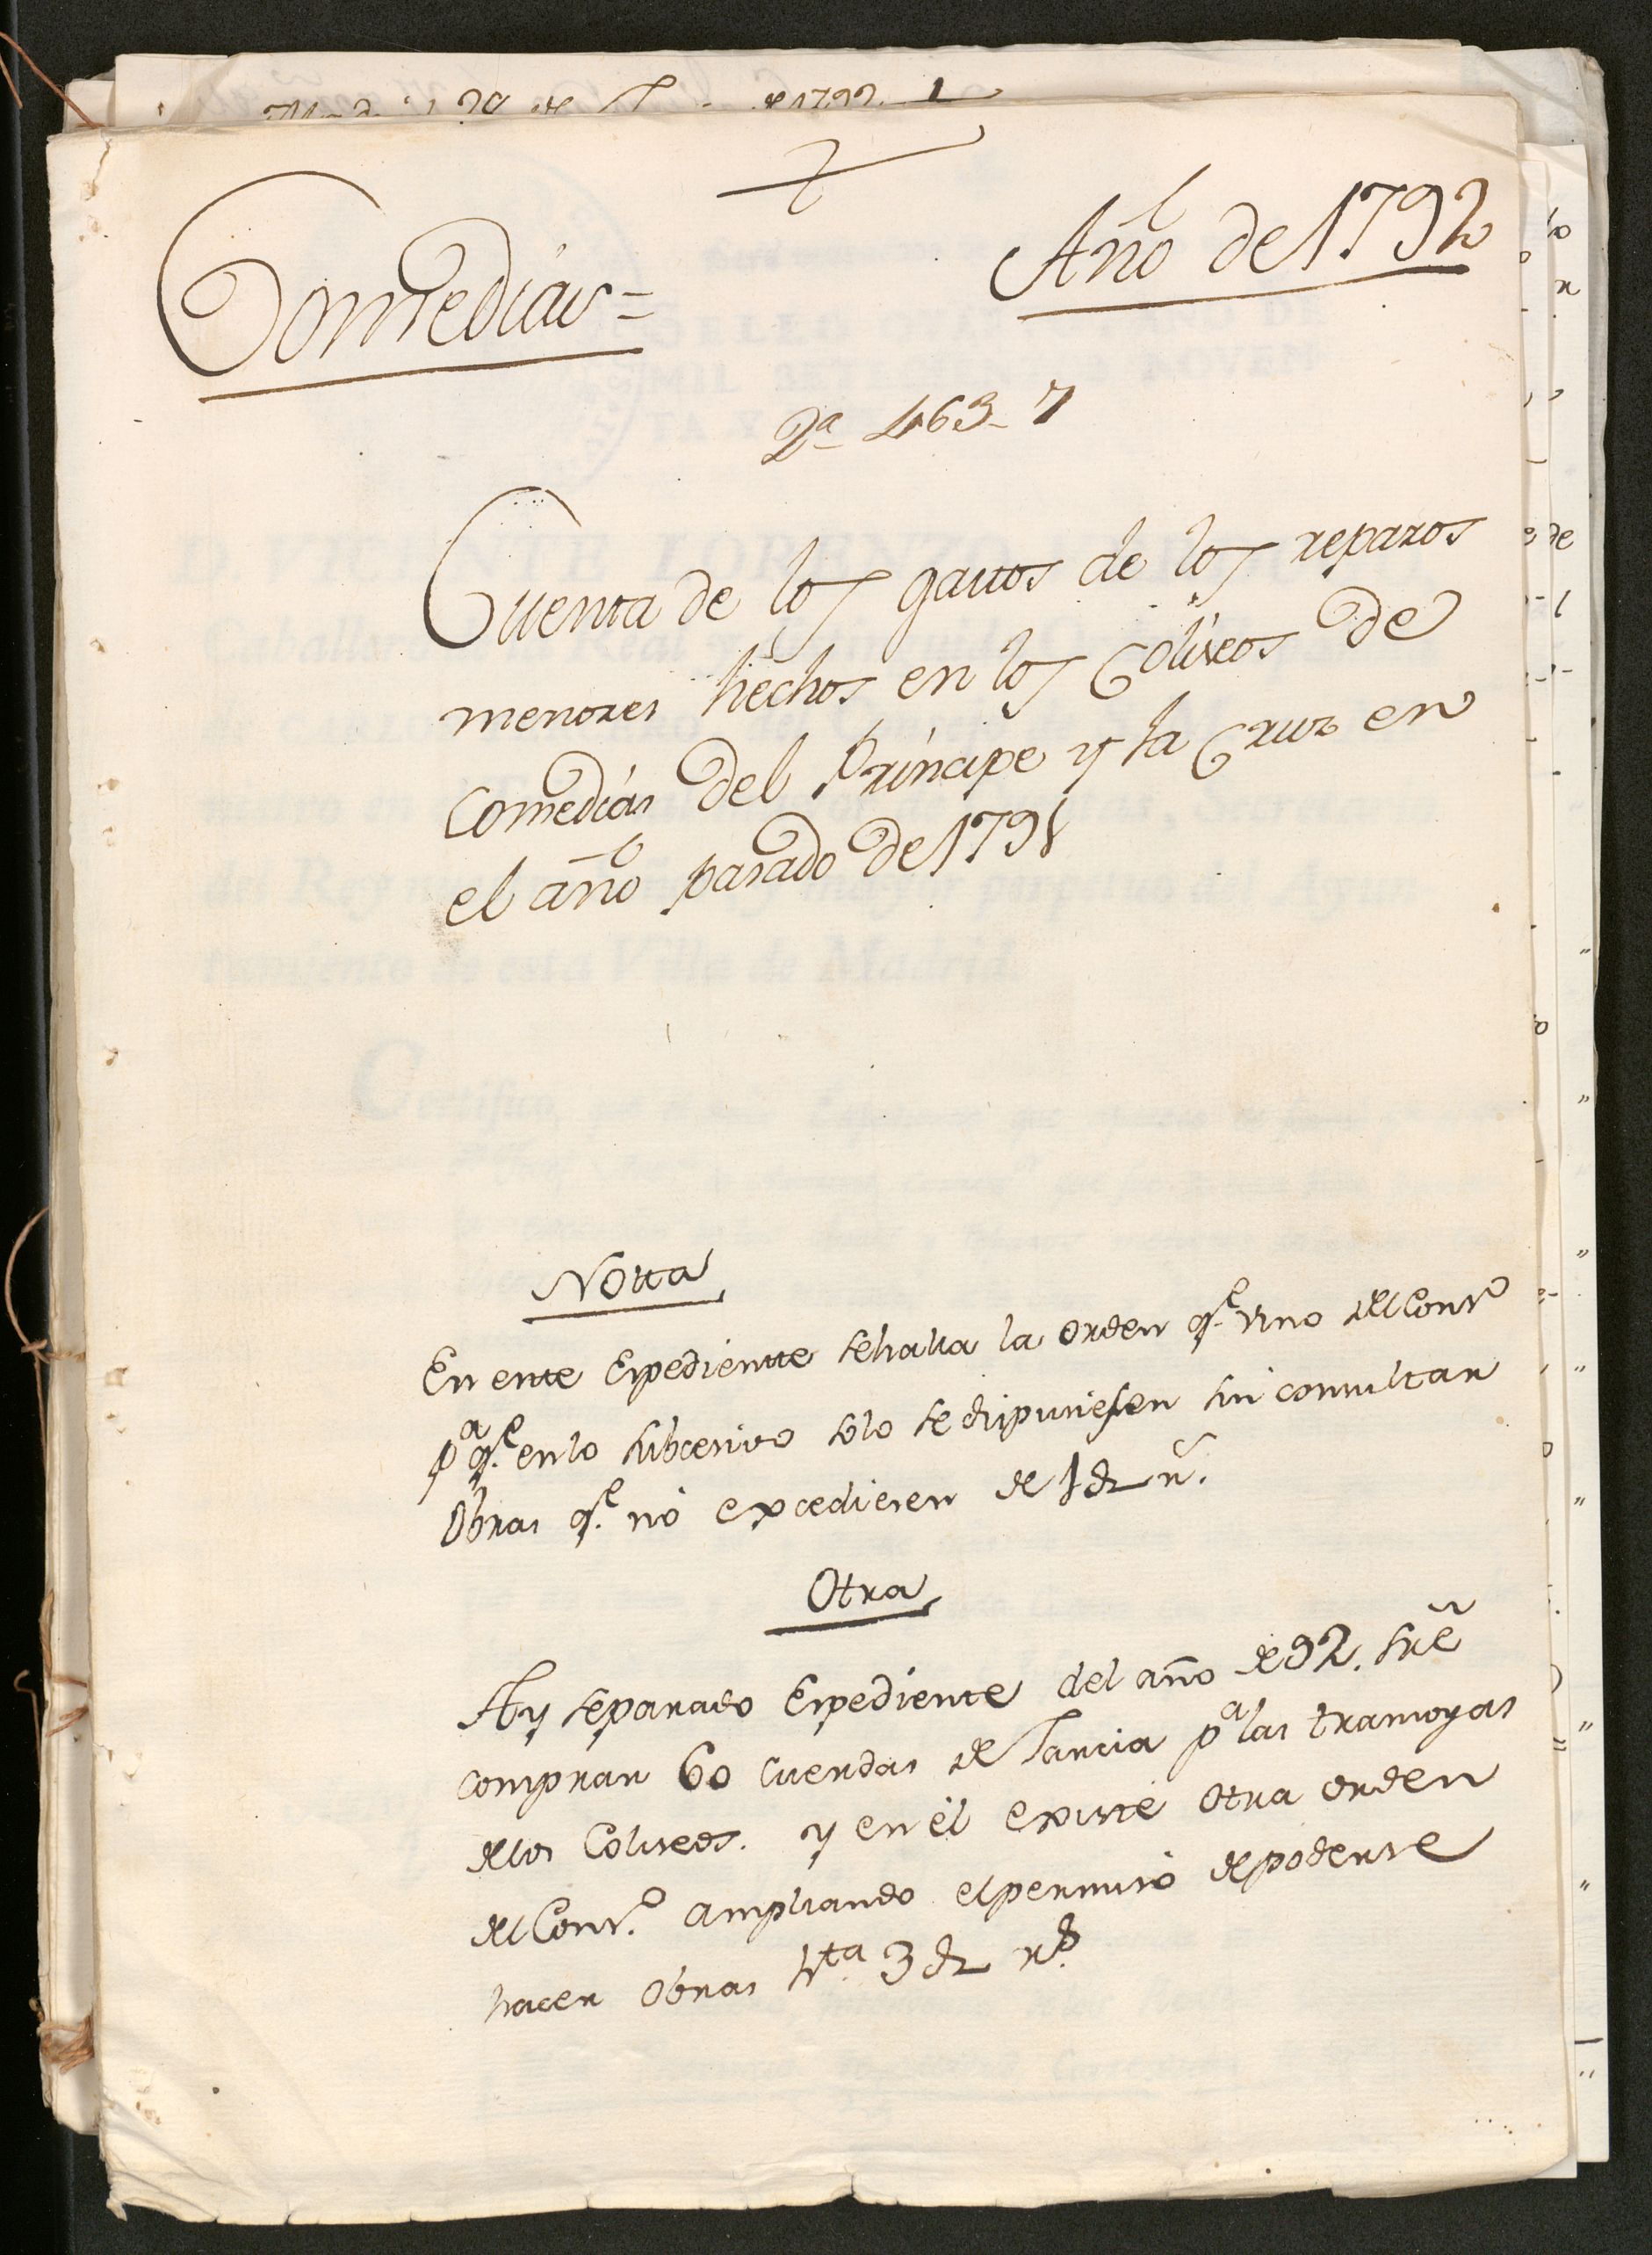 Madrid 20 de de 1792
Año de 1792
Comedias=
2ª 463-7
Cuenta de los gastos de los reparos
menores hechos en los Coliseos de
Comedias del Principe y la Cruz en
el año pasado de 1791
Notta
En este Expedientte se halla la orden q.e vino del Cons.o
p.a q.e en lo subcesivo solo se dispusiesen sin consultar
Obras q.e nó excediesen de 1 U r.s
Otra
Ay separado Expediente del año de 92. sre
comprar 60 cuerdas de Tarcia p.a las tramoyas
de los Coliseos. y en él existe otra orden
del Cons.o ampliando el permiso de poderse
hacer Obras h.ta 3 U r.s